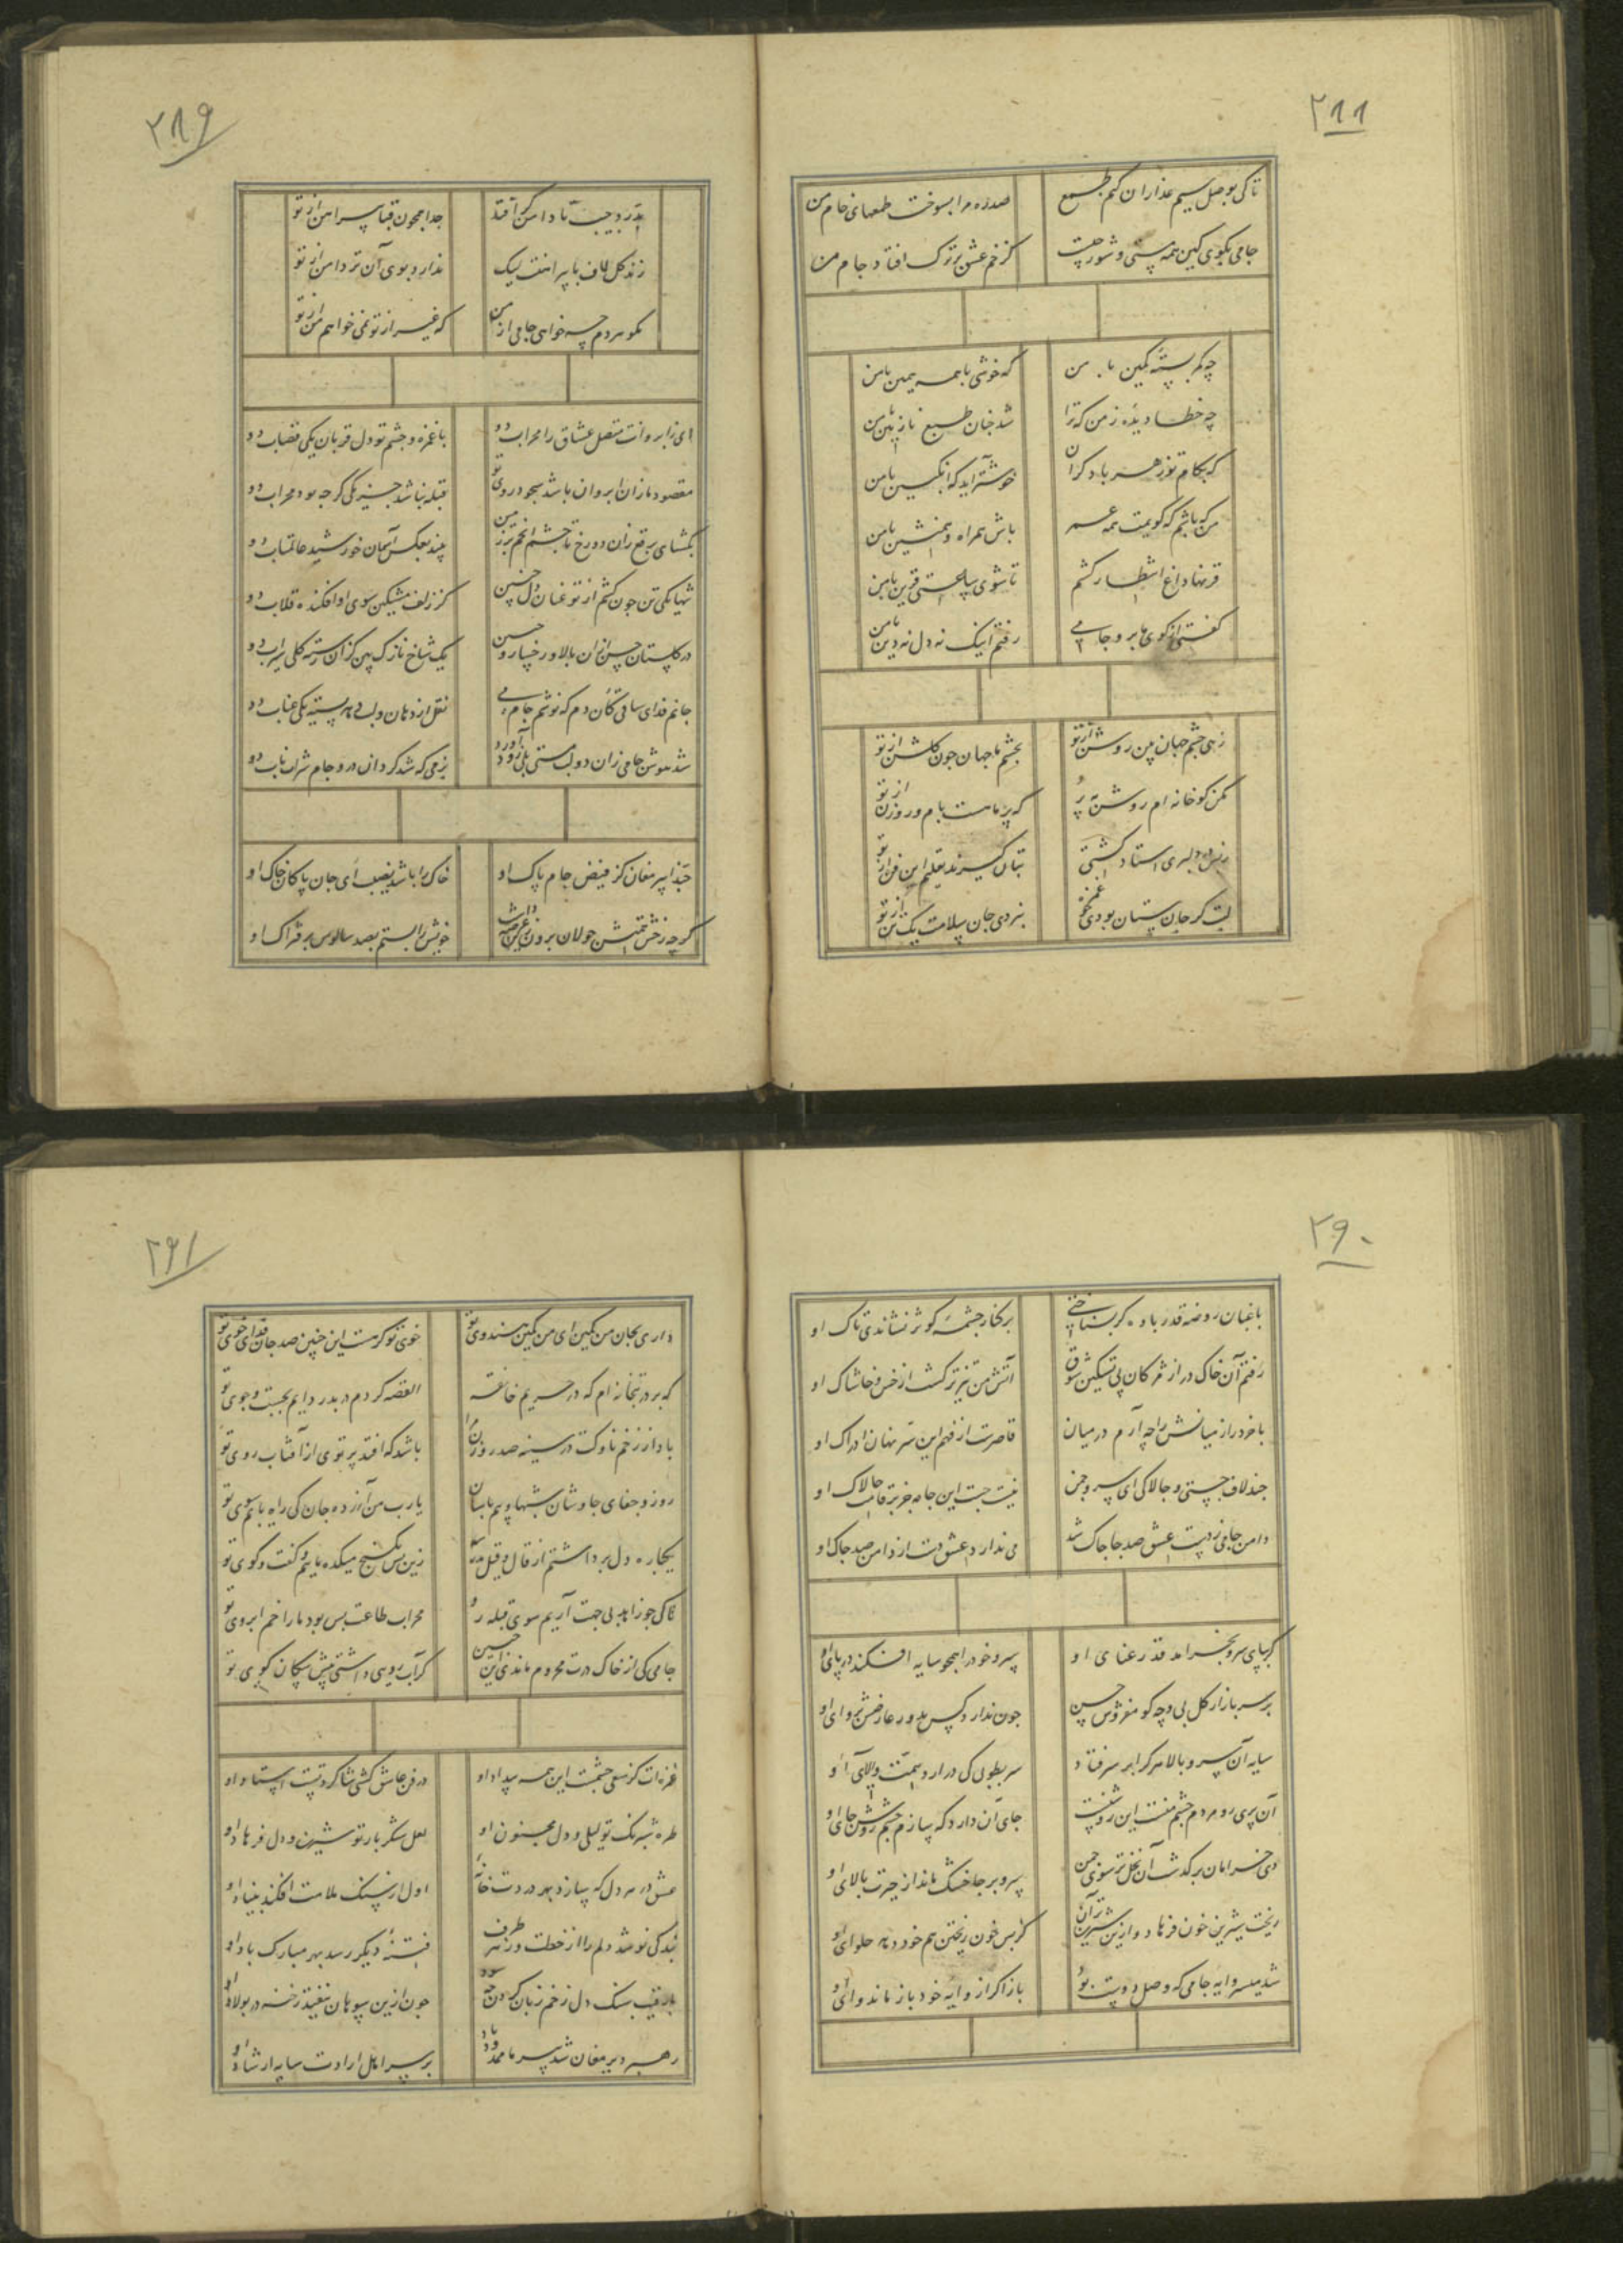 ٢٨٨
تا کی بوصل سیم عذاران کنم طمع
صدره مرا بسوخت طمعهای خام من
جامی بگوی کین همه مستی و شور چیست
کز خم عشق برترک افتاد جام من
چه کمر بسته بکین با من
که خوشی با همه همین با من
چه خطا دیده ز من که ترا
شد چنان طبع نازنین با من
که بکام تو زهر باد کران
خوشتر آید که انگبین با من
من که باشم که گویمت همه عمر
باش همراه و همنشین با من
قرنها داغ انتظار کشم
تا شوی ساعتی قرین با من
گفتی از کوی ما برو جامی
رفتم اینک نه دل نه دین با من
زهی چشم جهان بین روشن از تو
بچشم ما جهان چون گلشن از تو
مکن کو خانه ام روشن مه و خور
که پر ماهست بام و روزن از تو
دلبری استاد گشتی
بتان گیرند تعلیم این فن از تو
لبت گر جان ستان بودی چو غمزه
نبردی جان سلامت یک تن از تو
٢٨٩
بدرد جیب تا دامن گر افتد
جدا همچون قبا پیراهن از تو
زند گل لاف با پیراهنت لیک
ندارد بوی آن تر دامن از تو
مگو هر دم چه خواهی جامی از من
که غیر از تو نمی خواهم من از تو
ای ز ابروانت متصل عشاق را محراب دو
با غمزه و چشم تو دل قربان یکی قصاب دو
مقصود ما زان ابروان باشد سجود روی تو
قبله نباشد جز یکی گرچه بود محراب دو
بگشای برقع زان دو رخ تا چشم انجم بر زمین
بیند بعکس آسمان خورشید عالمتاب دو
تنها یکی تن چون کشم از تو عنان دل چنین
کز زلف مشکین سوی او افکنده قلاب دو
در گلستان حسن ازان بالا و رخسار و حسن
یک شاخ نازک بین کزان رسته گل سیراب دو
جانم فدای ساقی کان دم که نوشم جام می
نقل از دهان و لب دهد پسته یکی عناب دو
شد بیهوش جامی زان دو لب مستی بلی زود آورد
بزمی که شد گردان درو جام شراب ناب دو
حبذا پیر مغان کز فیض جام پاک او
خاک را باشد نصیب ای جان پاکان خاک او
گرچه رخش همتش جولان برون زین عرصه داشت
خویش را بستم بصد سالوس بر فتراک او
٢٩٠
باغبان روضه قدر باده گر بشناختی
بر کنار چشمه کوثر نشاندی تاک او
رفتم آن خاک در از مژگان پی تسکین شوق
آتش من تیزتر گشت از خس و خاشاک او
با خرد راز میانش را چه آرم در میان
قاصرست از فهم این سر نهان ادراک او
چند لاف چستی و چالاکی ای سرو چمن
نیست چست این جامه جز بر قامت چالاک او
دامن جامی ز دست عشق صد جا چاک شد
می ندارد عشق دست از دامن صد چاک او
گر بپای سرو بخرامد قد رعنای او
سرو خود را همچو سایه افکند در پای او
بر سر بازار گل بی وجه گو مفروش حسن
چون ندارد کس بدور عارضش پروای او
سایه آن سرو بالا هر کرا بر سر فتاد
سر بطوبی کی درآرد همت والای او
آن پری رو مردم چشم منست این روشنست
جای آن دارد که سازم چشم روشن جای او
دی خرامان برگذشت آن نخل تر سوی چمن
سرو بر جا خشک ماند از حیرت بالای او
ریخت شیرین خون فرهاد و ازین شیرین تر آن
کز بس خون ریختن هم خود دهد حلوای او
شد میسر وایه جامی که وصل دوست بود
باز اگر از وایه خود باز ماند وای او
٢٩١
داری بجان من کمین ای من کمین هندوی تو
خوی تو گر هست این چنین صد جان فدای خوی تو
که بر در بتخانه ام که در حریم خانقه
القصه گردم در بدر دایم بجست و جوی تو
بادا ز زخم ناوکت در سینه صد روزن مرا
باشد که افتد پرتوی از آفتاب روی تو
روز و جفای جاوشان شبها و بیم پاسبان
یارب من آزرده جان کی راه یابم سوی تو
یکباره دل برداشتم از قال و قیل مدرسه
زین پس بکنج میکده ماییم و گفت و گوی تو
تا کی چو زاهد بی جهت آریم سوی قبله رو
محراب طاعت بس بود ما را خم ابروی تو
جامی کی از خاک درت محروم ماندی این چنین
گر آب رویی داشتی پیش سگان کوی تو
غمزه ات کز سعی چشمت این همه بیداد او
در فن عاشق کشی شاگرد تست استاد او
طره شبرنگ تو لیلی و دل مجنون او
لعل شکر بار تو شیرین و دل فرهاد او
عشق در هر دل که سازد بهر دردت خانه
اول از سنگ ملامت افکند بنیاد او
بندگی نو شد دلم را از خطت وز هر طرف
فتنه دیگر رسد بهر مبارک باد او
با رقیب سنگ دل زخم زبان کردن چه سود
چون ازین سوهان نیفتد رخنه در پولاد او
رهبر دیر مغان شد پیر ما ممدود باد
بر سر اهل ارادت سایه ارشاد او